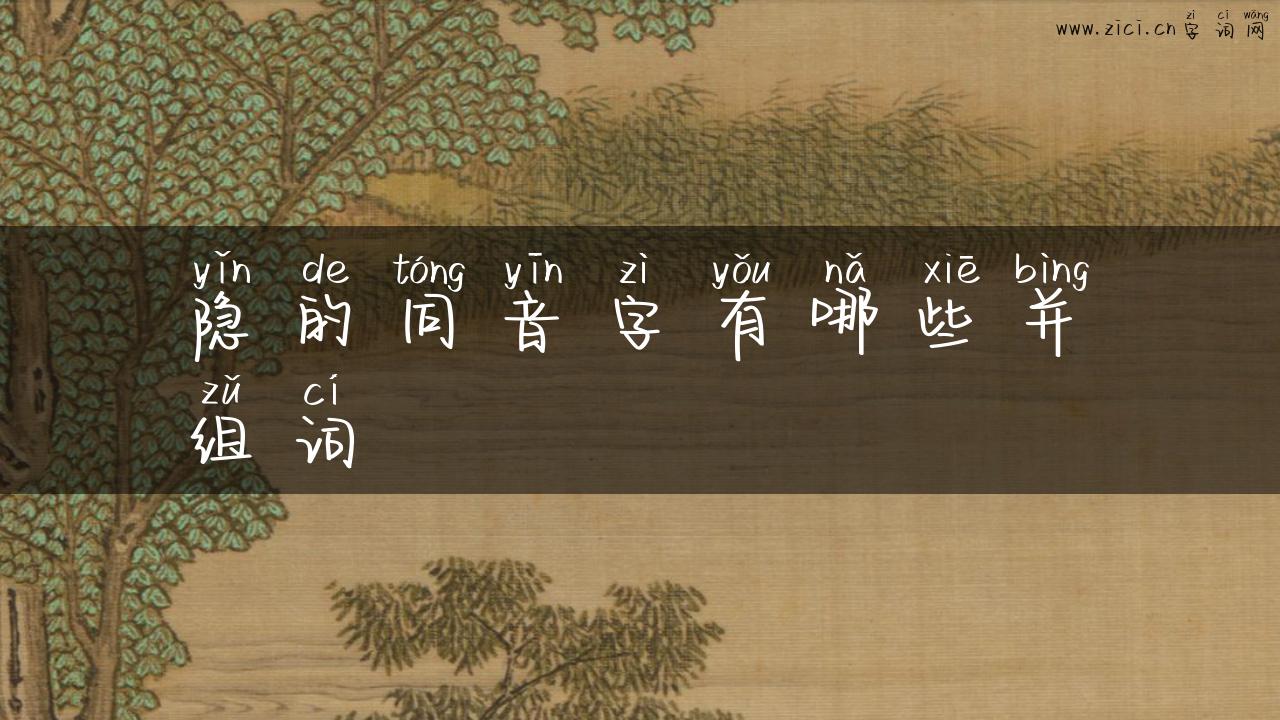 zì cí wǎng
www.zici.cn字词网
yǐn de tóng yīn zì yǒu nǎ xiē bìng
隐的同音字有哪些并
zǔ cí
组词